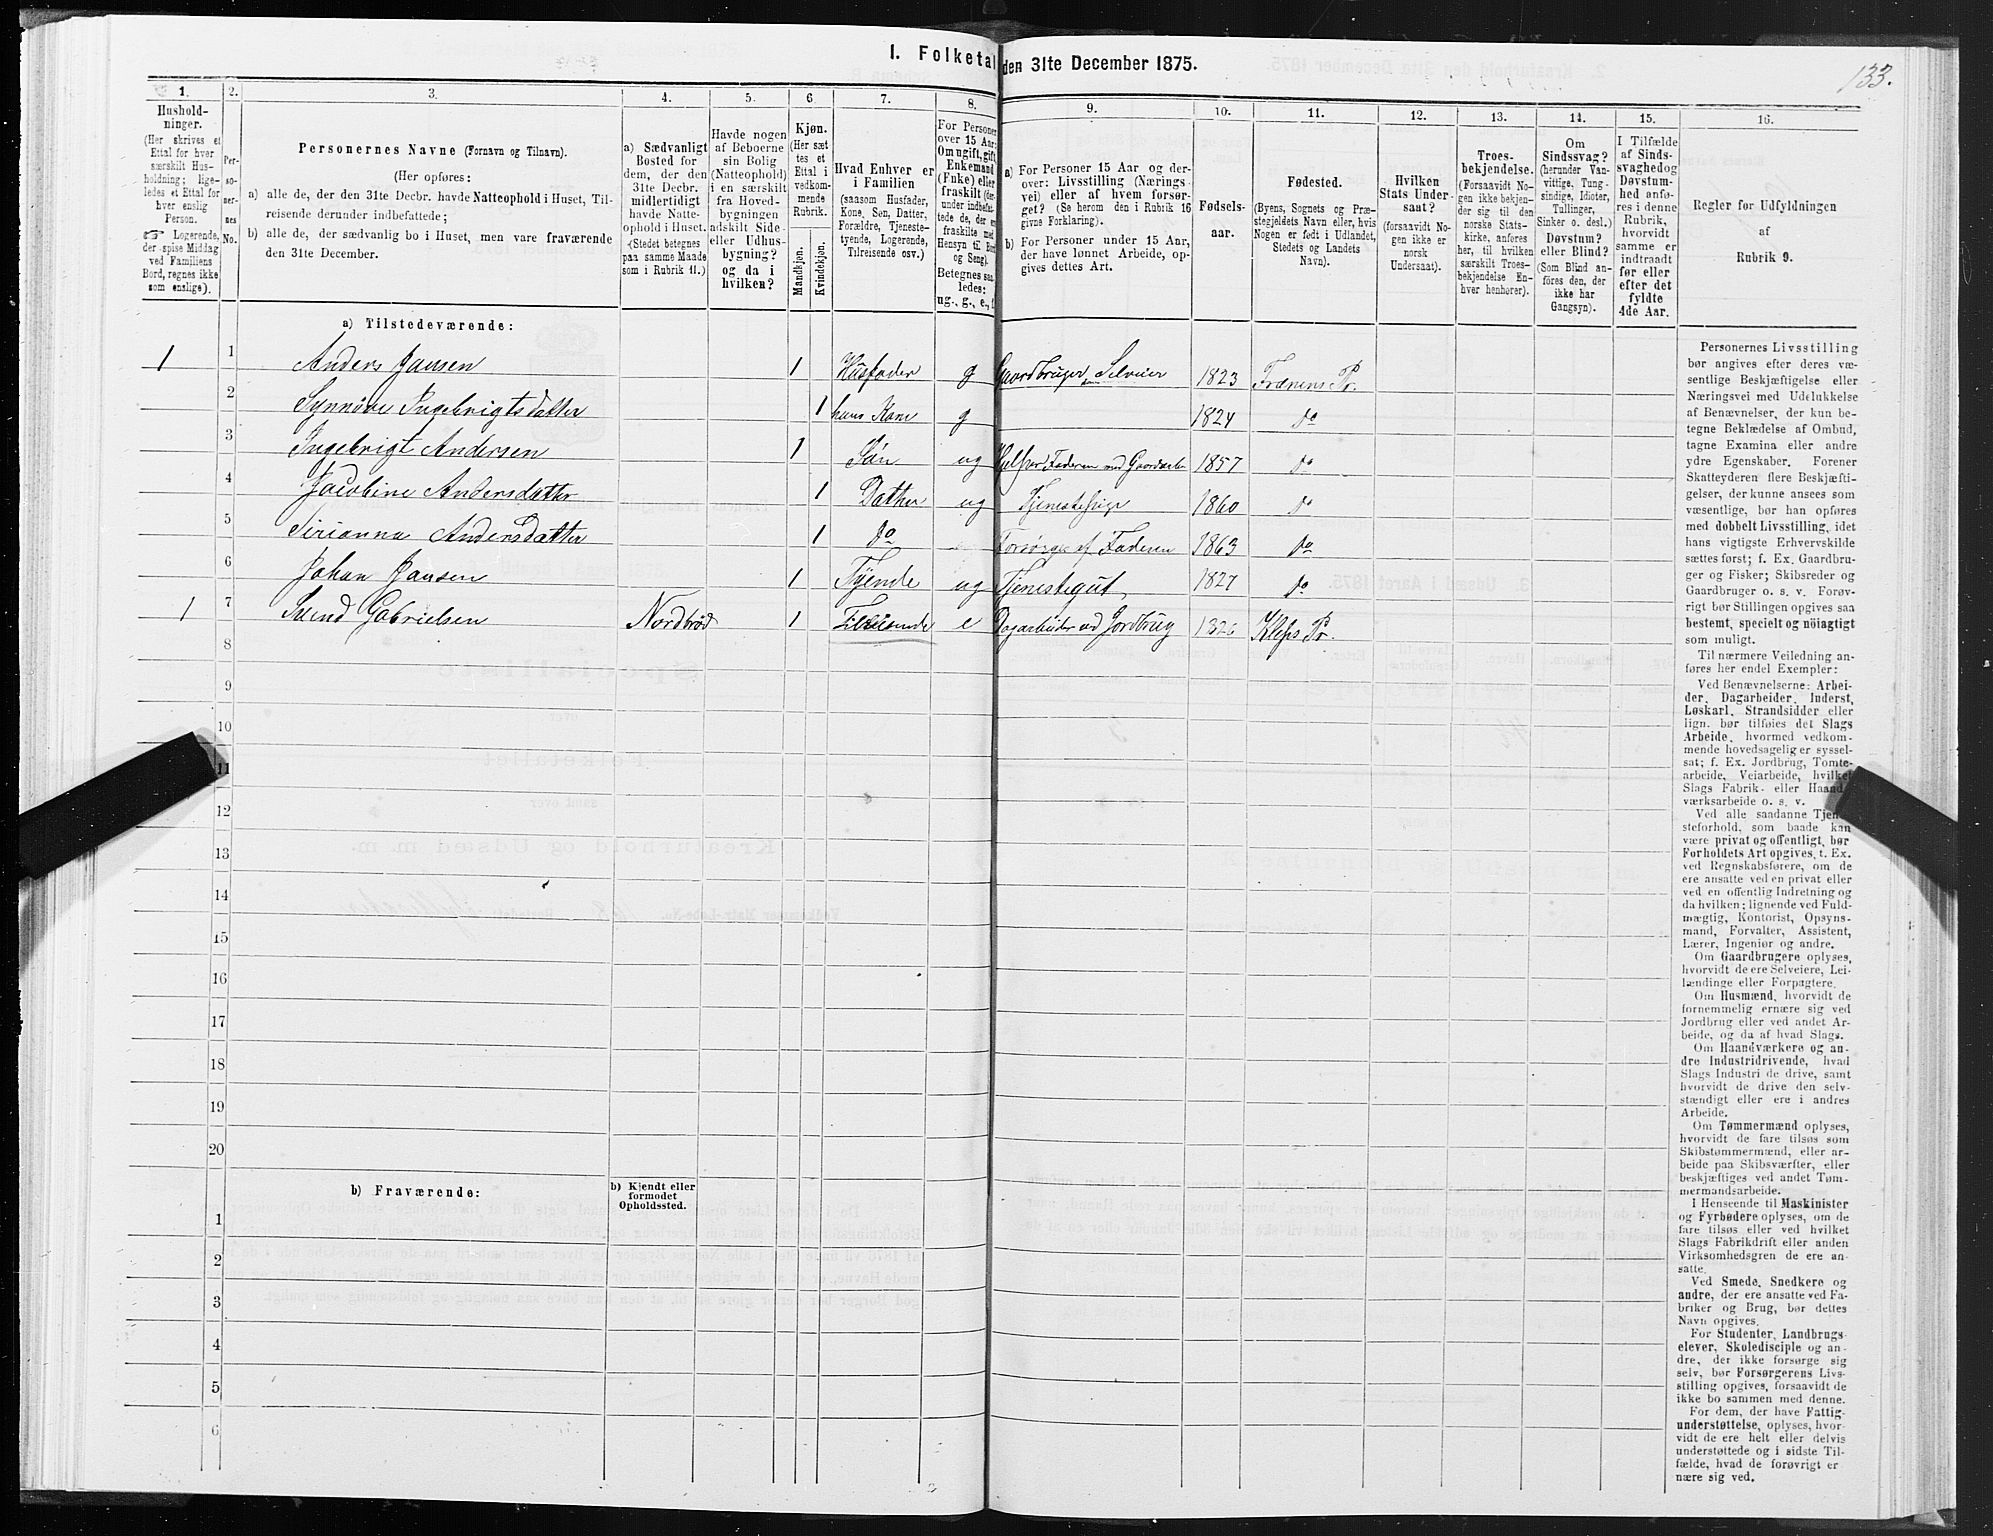 133.
I. Folketal den 31te December 1875.
1. 2. 3. 4. 5. 6 7. 8. 9. 10. 11. 12. 13. 14. 15. 16.
Hushold-
ninger.
(Her skrives et
Ettal for hver
særskilt Hus-
holdning; lige-
ledes et Ettal for
hver enslig
Person.
☞ Logerende,
der spise Middag
ved Familiens
Bord, regnes ikke
som enslige).
Per-
so-
ner-
nes
No.
Personernes Navne (Fornavn og Tilnavn).
(Her opføres:
a) alle de, der den 31te Decbr. havde Natteophold i Huset, Til-
reisende derunder indbefattede;
b) alle de, der sædvanlig bo i Huset, men vare fraværende
den 31te December.
a) Sædvanligt
Bosted for
dem, der den
31te Decbr.
midlertidigt
havde Natte-
ophold i Huset.
(Stedet betegnes
paa samme Maade
som i Rubrik 11.)
Havde nogen
af Beboerne
sin Bolig
(Natteophold)
i en særskilt
fra Hoved-
bygningen
adskilt Side-
eller Udhus-
bygning?
og da i
hvilken?
Kjøn.
(Her sæt
tes et
Ettal i
vedkom-
mende
Rubrik.
Mandkjøn.
Kvindekjøn.
Hvad Enhver er
i Familien
(saasom Husfader,
Kone, Søn, Datter,
Forældre, Tjeneste-
tyende, Logerende,
Tilreisende osv.)
For Personer
over 15 Aar:
Om ugift, gift,
Enkemand
(Enke) eller
fraskilt (der-
under indbefat-
tede de, der ere
fraskilte med
Hensyn til Bord
og Seng).
Betegnes saa-
ledes:
ug., g., e., f.
a) For Personer 15 Aar og der-
over: Livsstilling (Nærings
vei) eller af hvem forsør-
get? (Se herom den i Rubrik 16
givne Forklaring).
b) For Personer under 15 Aar,
der have lønnet Arbeide, op-
gives dettes Art.
Fødsels-
aar.
Fødested.
(Byens, Sognets og Præ-
stegjeldets Navn eller, hvis
Nogen er født i Udlandet,
Stedets og Landets
Navn).
Hvilken
Stats Under-
saat?
(forsaavidt No-
gen ikke er
norsk
Undersaat).
Troes-
bekjendelse.
(Forsaavidt No-
gen ikke bekjen-
der sig til den
norske Stats-
kirke, anføres
her, til hvilken
særskilt Troes-
bekjendelse En-
hver henhører).
Om
Sindssvag?
(herunder Van-
vittige, Tung-
sindige, Idioter,
Tullinger,
Sinker o. desl.)
Døvstum?
eller Blind?
(Som Blind an-
føres den, der
ikke har
Gangsyn).
I Tilfælde
af Sinds-
svaghed og
Døvstum-
hed anfø-
res i denne
Rubrik,
hvorvidt
samme er
indtraadt
før eller
efter det
fyldte
4de Aar.
Regler for Udfyldningen
af
Rubrik 9.
a) Tilstedeværende:
1 1 Anders Jansen 1 Husfader g Gaardbruger Selveier 1823 Frænens Pr.
2 Synnöve Ingebrigtsdatter 1 hans Kone g 1824 do
3 Ingebrigt Andersen 1 Sön ug Hjelper Faderen med Gaardsarb. 1857 do
4 Jacobine Andersdatter 1 Datter ug Tjenestepige 1860 do
5 Sirianna Andersdatter 1 do Forsörges af Faderen 1863 do
6 Johan Jansen 1 Tyende ug Tjenestegut 1827 do
1 7 Svend Gabrielsen Nordbröd 1 e Dagarbeider ved Jordbrug 1826 Kleps Pr.
8
9
10
11
12
13
14
15
16
17
18
19
20
b) Fraværende:
b) Kjendt eller
formodet
Opholdssted.
1
2
3
4
5
6
Personernes Livsstilling
bør angives efter deres væ-
sentlige Beskjæftigelse eller
Næringsvei med Udelukkelse
af Benævnelser, der kun be-
tegne Beklædelse af Ombud,
tagne Examina eller andre
ydre Egenskaber. Forener
Skatteyderen flere Beskjæfti-
gelser, der kunne ansees som
væsentlige, bør han opføres
med dobbelt Livsstilling, idet
hans vigtigste Erhvervskilde
sættes først; f. Ex. Gaardbru-
ger og Fisker; Skibsreder og
Gaardbruger o. s. v. Forøv-
rigt bør Stillingen opgives saa
bestemt, specielt og nöiagtigt
som muligt.
Til nærmere Veiledning an-
føres her endel Exempler:
Ved Benævnelserne: Arbei-
der, Dagarbeider, Inderst,
Løskarl, Strandsidder eller
lign. bør tilføies det Slags
Arbeide, hvormed vedkom-
mende hovedsagelig er syssel-
sat; f. Ex. Jordbrug, Tomte-
arbeide, Veiarbeide, hvilket
Slags Fabrik- eller Haand-
værksarbeide o. s. v.
Ved alle saadanne Tjene-
steforhold, som baade kan
være privat og offentligt, bør
Forholdets Art opgives, t. Ex.
ved Regnskabsførere, om de
ere ansatte ved en privat eller
ved en offentlig Indretning og
da hvilken; lignende ved Fuld-
mægtig, Kontorist, Opsyns-
mand, Forvalter, Assistent,
Lærer, Ingeniør og andre.
Om Gaardbrugere oplyses,
hvorvidt de ere Selveiere, Lei-
lændinge eller Forpagtere.
Om Husmænd, hvorvidt de
fornemmelig ernære sig ved
Jordbrug eller ved andet Ar-
beide, og da af hvad Slags.
Om Haandværkere og an-
dre Industridrivende, hvad
Slags Industri de drive, samt
hvorvidt de drive den selv-
stændigt eller ere i andres
Arbeide.
Om Tømmermænd oplyses,
hvorvidt de fare tilsøs som
Skibstømmermænd, eller ar-
beide paa Skibsværfter, eller
beskjæftiges ved andet Tøm-
mermandsarbeide.
I Henseende til Maskinister
og Fyrbødere oplyses, om de
fare tilsøs eller ved hvilket
Slags Fabrikdrift eller anden
Virksomhedsgren de ere an-
satte.
Ved Smede, Snedkere og
andre, der ere ansatte ved Fa-
briker og Brug, bør dettes
Navn opgives.
For Studenter, Landbrugs-
elever, Skoledisciple og an-
dre, der ikke forsørge sig
selv, bør Forsørgerens Livs-
stilling opgives, forsaavidt de
ikke bo sammen med denne.
For dem, der have Fattig-
understøttelse, oplyses, hvor-
vidt de ere helt eller delvis
understøttede og i sidste Til-
fælde, hvad de forøvrigt er
nære sig ved.